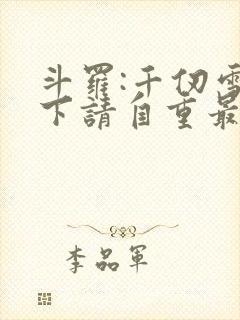 斗羅:千仞雪
下請自重最
李品軍